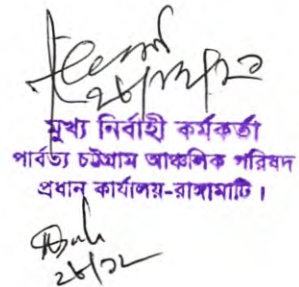 ২৮/১২/২০
মুখ্য নির্বাহী কর্মকর্তা
পার্বত্য চট্টগ্রাম আঞ্চলিক পরিষদ
প্রধান কার্যালয়-রাঙ্গামাটি।
২৮/১২